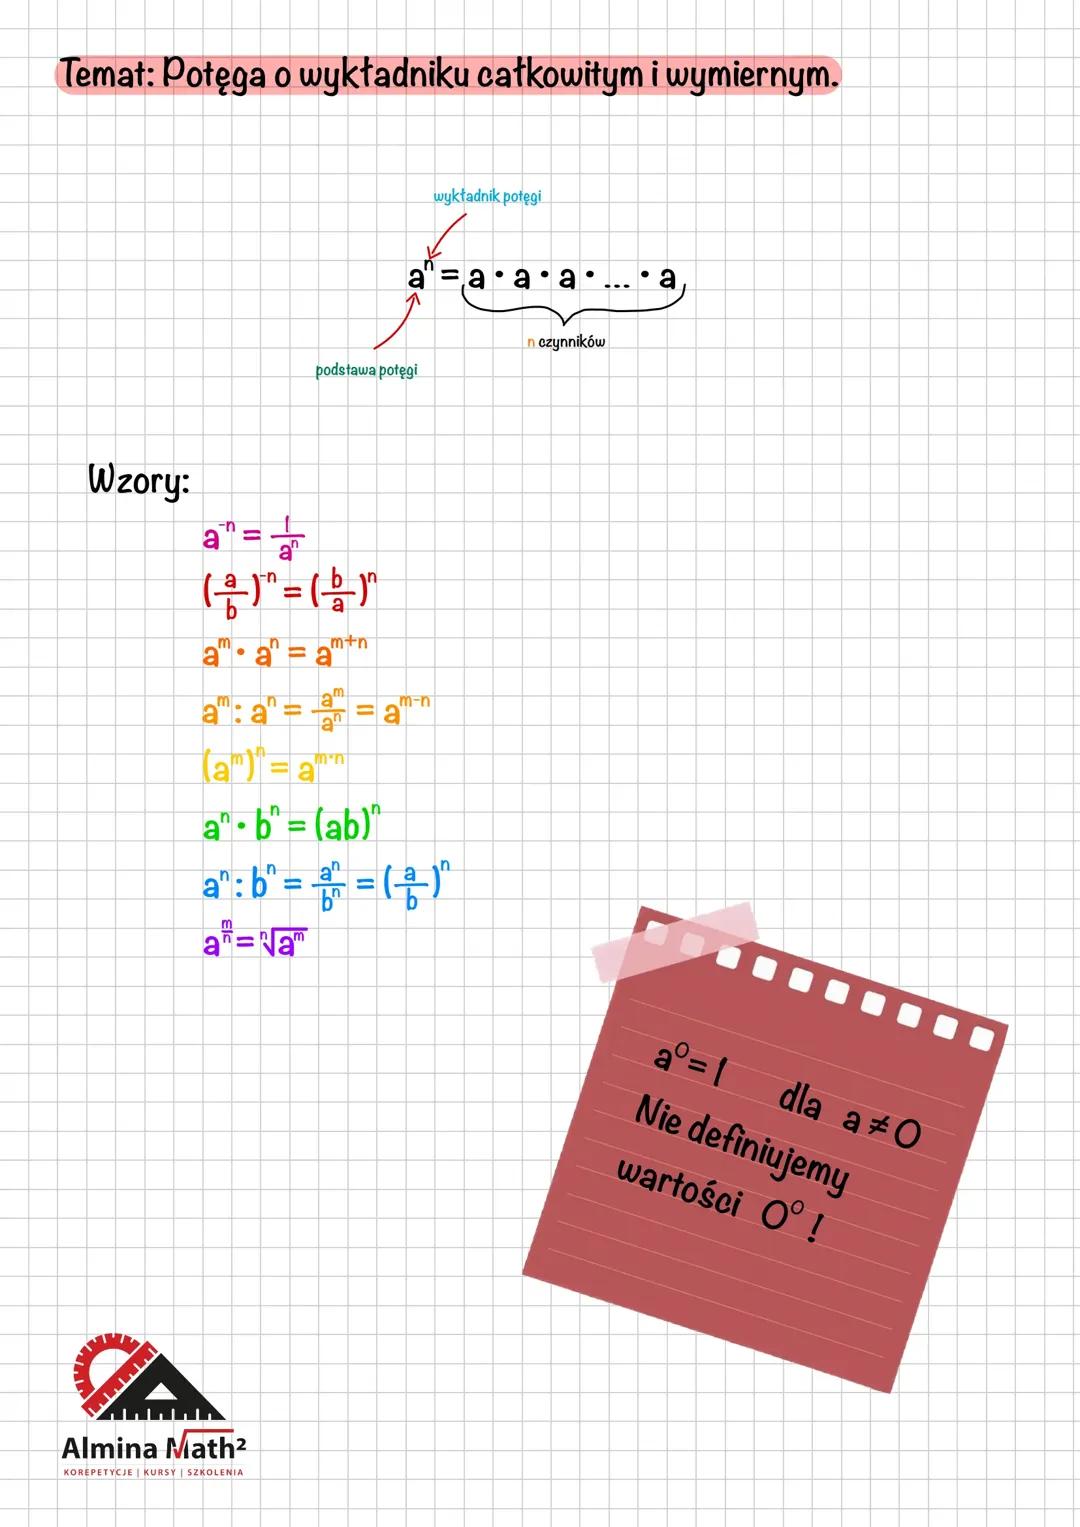 Temat: Potęga o wykładniku całkowitym i wymiernym.
wykładnik potęgi
aⁿ = a · a · a · ... · a
n czynników
podstawa potęgi
Wzory:
a⁻ⁿ = 1/aⁿ
(a/b)⁻ⁿ = (b/a)ⁿ
aᵐ · aⁿ = aᵐ⁺ⁿ
aᵐ : aⁿ = aᵐ/aⁿ = aᵐ⁻ⁿ
(aᵐ)ⁿ = a^(m·n)
aⁿ · bⁿ = (ab)ⁿ
aⁿ : bⁿ = aⁿ/bⁿ = (a/b)ⁿ
a^(m/n) = ⁿ√aᵐ
a⁰ = 1 dla a ≠ 0
Nie definiujemy
wartości 0⁰ !
Almina Math²
KOREPETYCJE | KURSY | SZKOLENIA